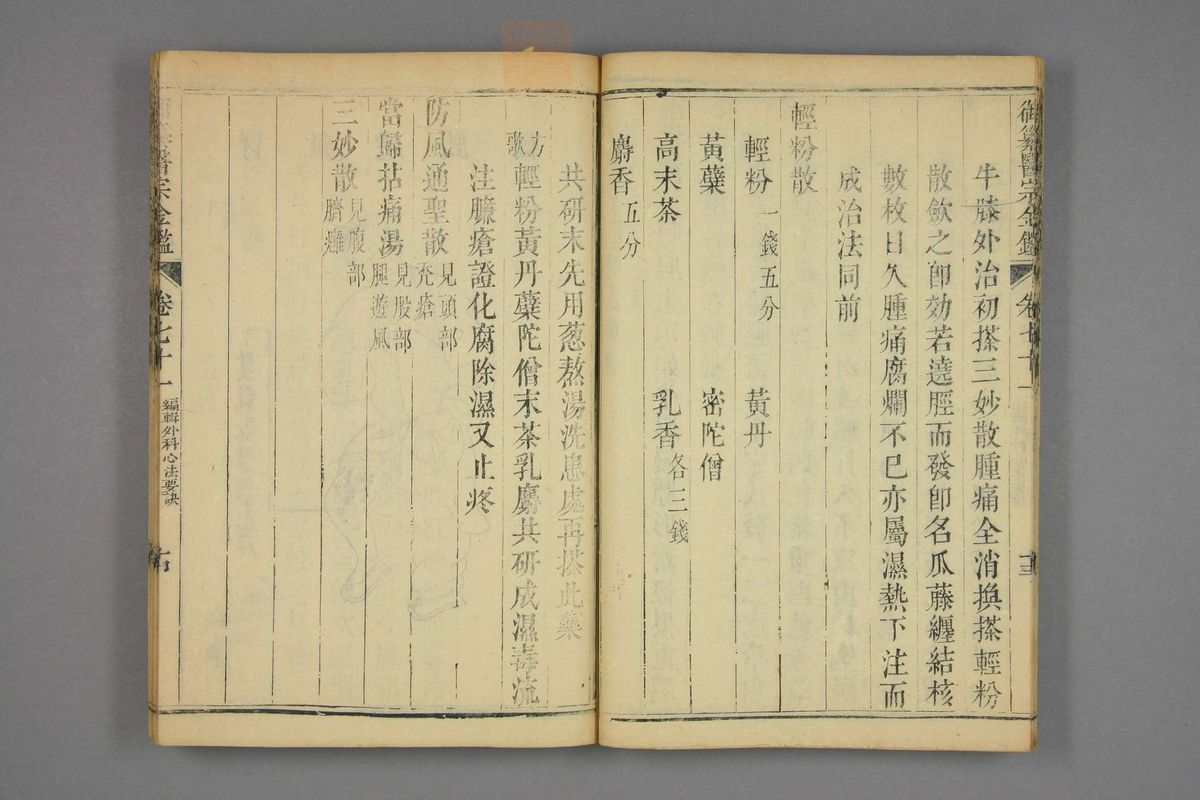 御纂醫宗金鑑 卷七十一 十三
牛膝外治初搽三妙散腫痛全消換搽輕粉
散斂之卽効若遶脛而發卽名瓜藤纏結核
數枚日久腫痛腐爛不已亦屬濕熱下注而
成治法同前
輕粉散
輕粉一錢五分 黃丹
黃蘗 密陀僧
高末茶 乳香各三錢
麝香五分
共研末先用葱熬湯洗患處再搽此藥
方歌 輕粉黃丹蘗陀僧末茶乳麝共研成濕毒流
注臁瘡證化腐除濕又止疼
防風通聖散見頭部禿瘡
當歸拈痛湯見股部腿遊風
三妙散見腹部臍癰
醫宗金鑑 卷七十一 編輯外科心法要訣 十四